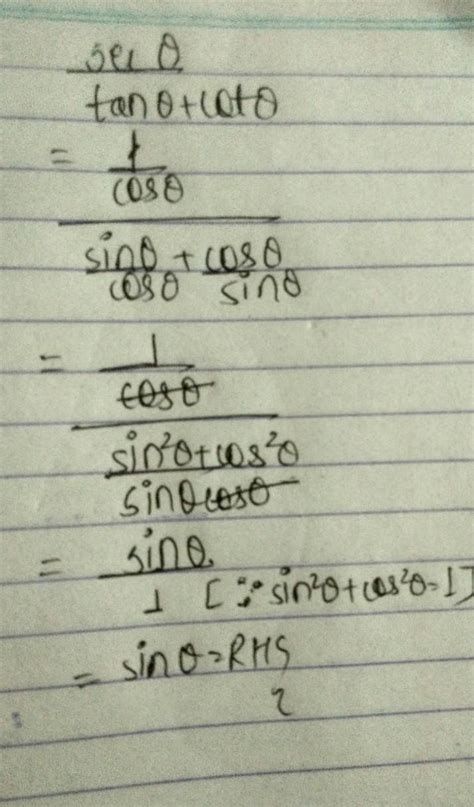 sec θ
tanθ+cotθ
= 1
cosθ
sinθ + cosθ
cosθ sinθ
= 1
cosθ
sin²θ+cos²θ
sinθcosθ
= sinθ
1 [∵ sin²θ+cos²θ=1]
= sinθ=RHS